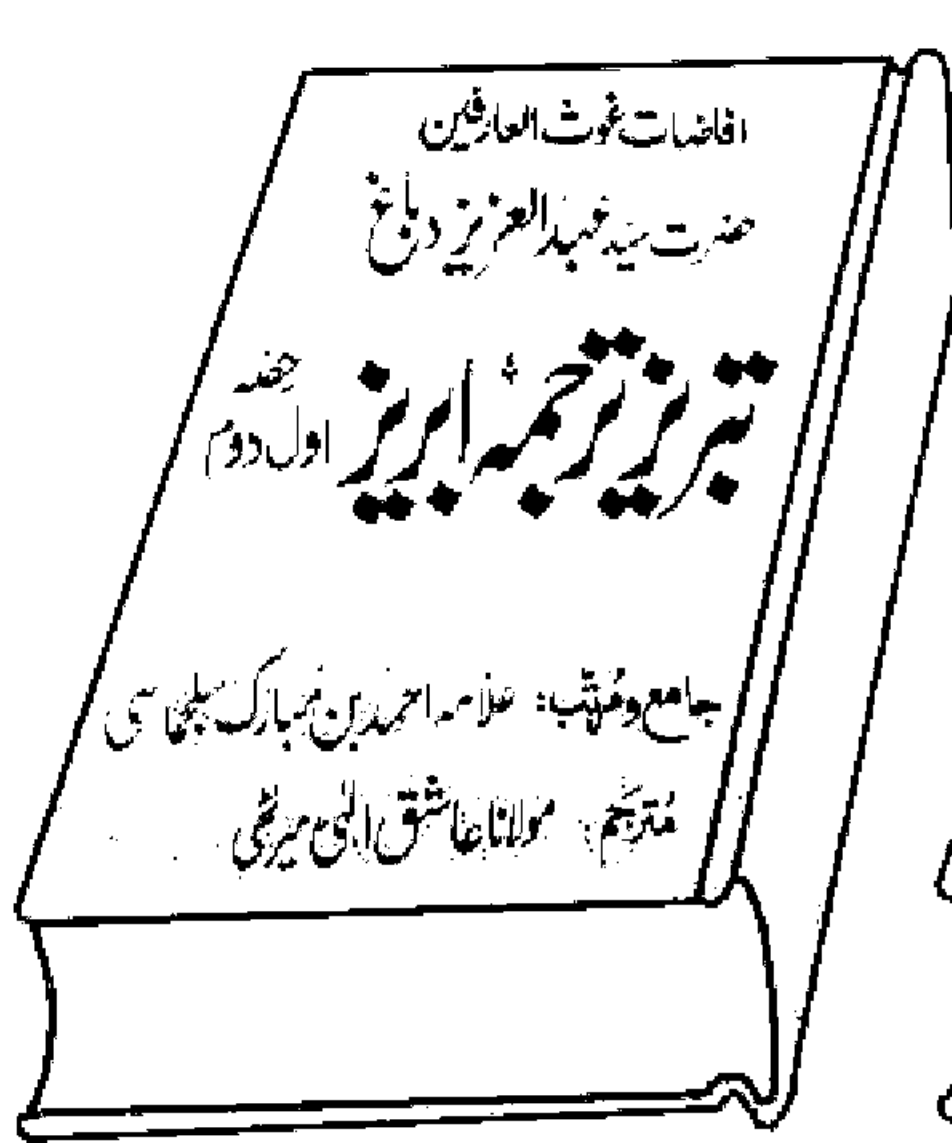 افاضات غوث العارفین
حضرت سید عبدالعزیز دباغ
تبریز ترجمۂ ابریز
حصہ
اول دوم
جامع و مرتب: علامہ احمد بن مبارک سلجماسی
مترجم: مولانا عاشق الٰہی میرٹھی